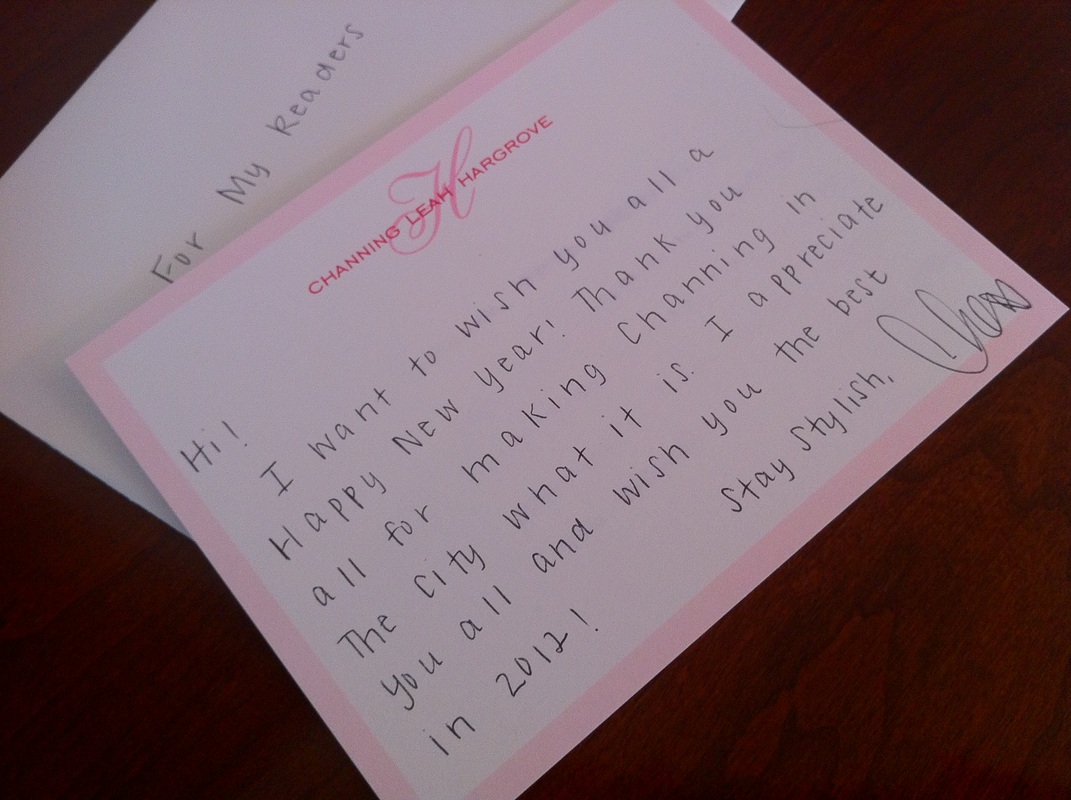 For My Readers
H
CHANNING LEAH HARGROVE
Hi!
I want to wish you all a
Happy New year! Thank you
all for making Channing in
The City what it is. I appreciate
you all and wish you the best
in 2012!
Stay Stylish,